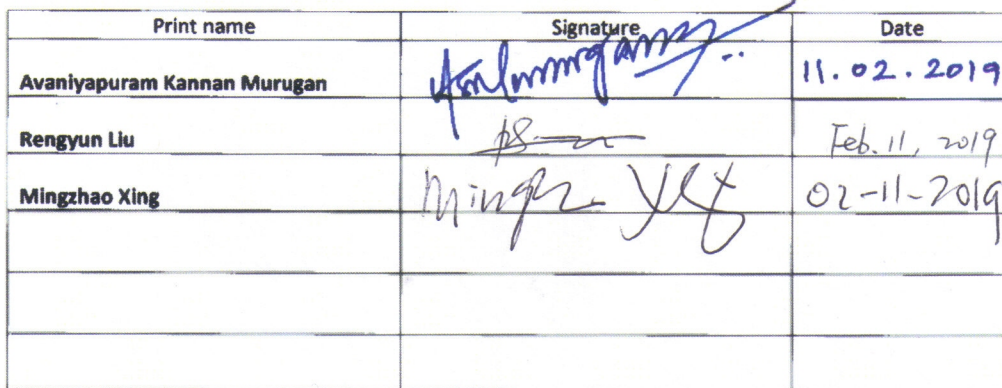 Print name Signature Date
Avaniyapuram Kannan Murugan 11.02.2019
Rengyun Liu Feb. 11, 2019
Mingzhao Xing 02-11-2019